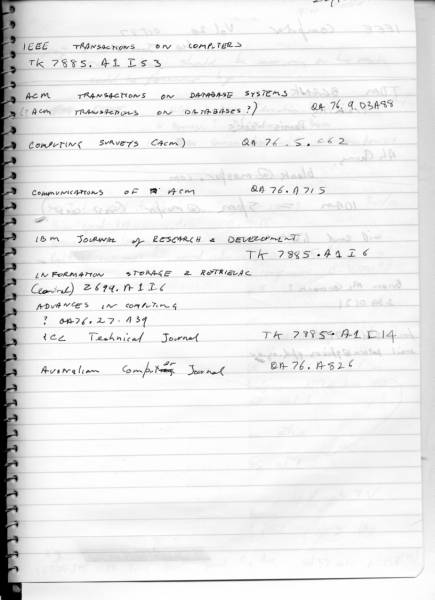 IEEE TRANSACTIONS ON COMPUTERS
TK 7885. A1 I53
ACM TRANSACTIONS ON DATABASE SYSTEMS
(ACM TRANSACTIONS ON DATABASES?) QA 76.9.D3A88
COMPUTING SURVEYS (ACM) QA 76.5.C62
COMMUNICATIONS OF ACM QA 76.A715
IBM JOURNAL of RESEARCH & DEVELOPMENT
TK 7885.A1 I6
INFORMATION STORAGE & RETRIEVAL
(central) Z699.A1 I6
ADVANCES IN COMPUTING
? QA76.27.A39
ICL Technical Journal TK 7885.A1 I14
Australian Computer Journal QA 76.A826